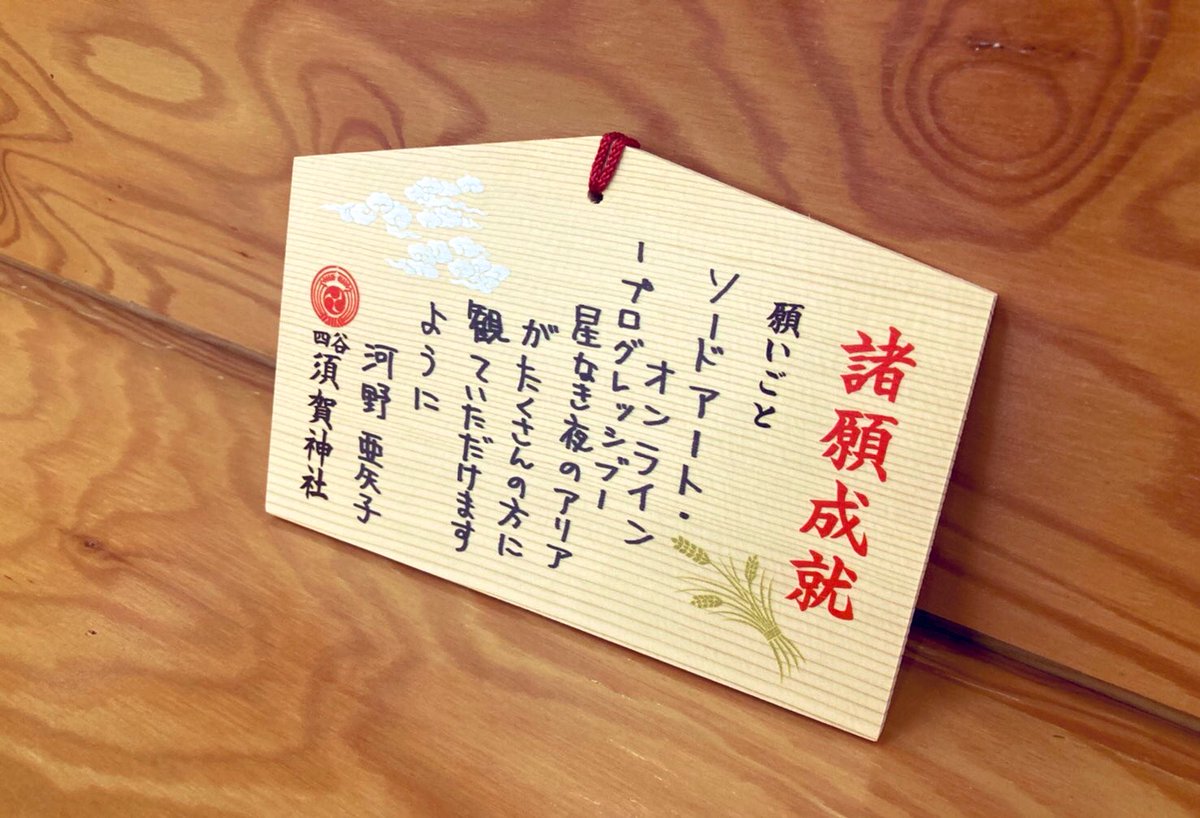 諸願成就
願いごと
ソードアート・
オンライン
ープログレッシブー
星なき夜のアリア
がたくさんの方に
観ていただけます
ように
河野 亜矢子
四谷
須賀神社